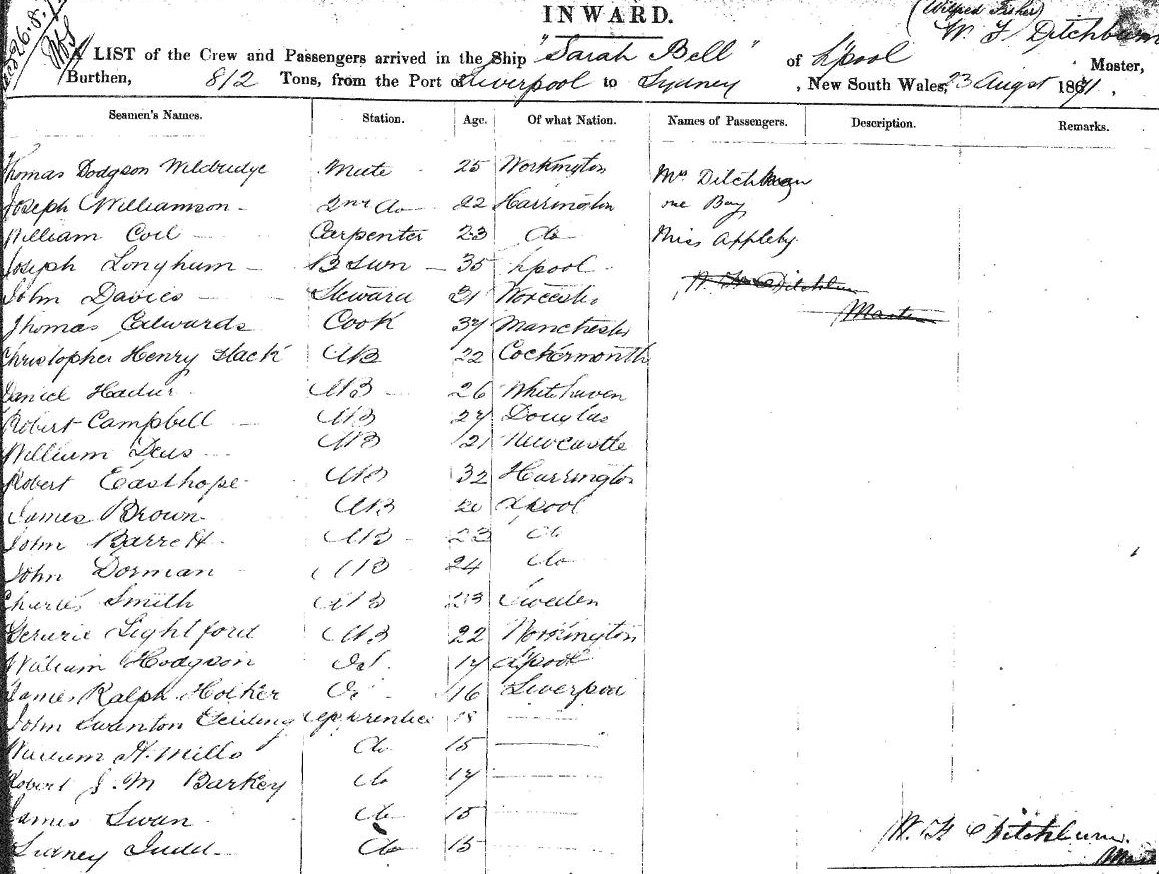 INWARD.
(Wilfred Fisher)
W. F. Ditchburn
26.8.
A LIST of the Crew and Passengers arrived in the Ship "Sarah Bell" of L'pool Master,
Burthen, 812 Tons, from the Port of Liverpool to Sydney, New South Wales, 23 August 1871.
Seamen's Names. Station. Age. Of what Nation. Names of Passengers. Description. Remarks.
Thomas Dodgson Wildridge Mate 25 Workington Mrs Ditchburn
Joseph Williamson 2nd do 22 Harrington one Boy
William Coil Carpenter 23 do Miss Appleby
Joseph Longhum B Sun 35 L'pool
John Davies Steward 31 Worcester W. Ditchburn
Thomas Edwards Cook 37 Manchester Master
Christopher Henry Slack AB 22 Cockermouth
Daniel AB 26 Whitehaven
Robert Campbell AB 27 Douglas
William AB 21 Newcastle
Robert Easthope AB 32 Harrington
James Brown AB 20 L'pool
John Barrett AB 23 do
John Dorman AB 24 do
Charles Smith AB 23 Sweden
Lightford AB 22 Workington
William Hodgson Od. 17 L'pool
James Ralph Hocker O 16 Liverpool
John Swanton Apprentice 18
William H. Mills do 15
Robert J. M Barkey do 17
James Swan do 15
Sidney Judd do 15
W. F. Ditchburn.